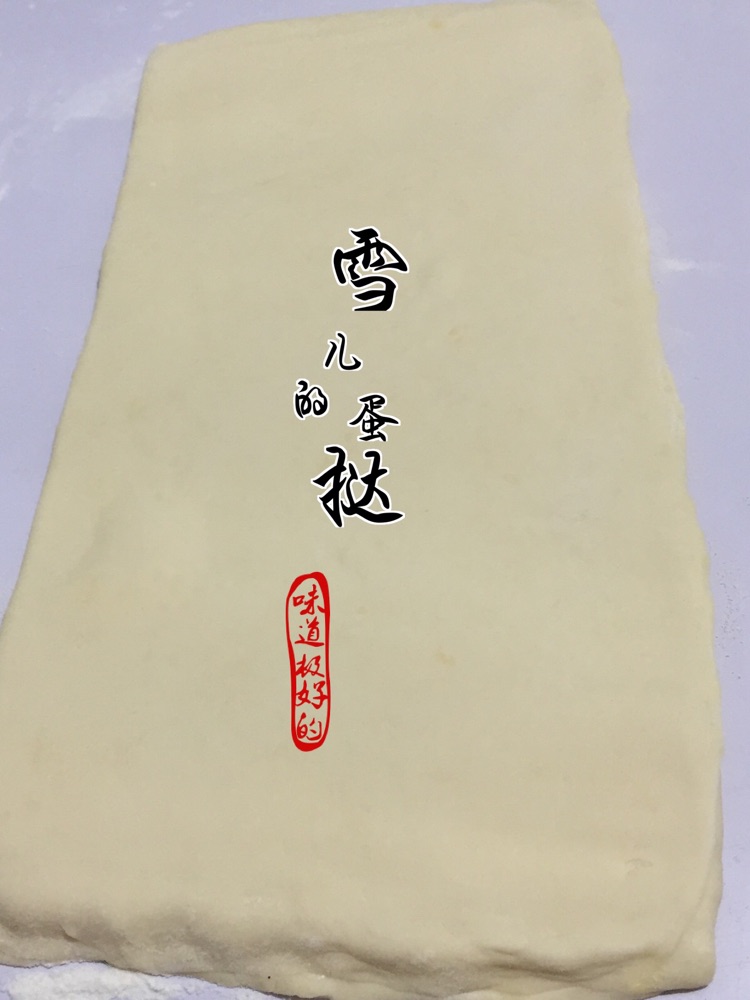 雪儿的蛋挞
味道极好的